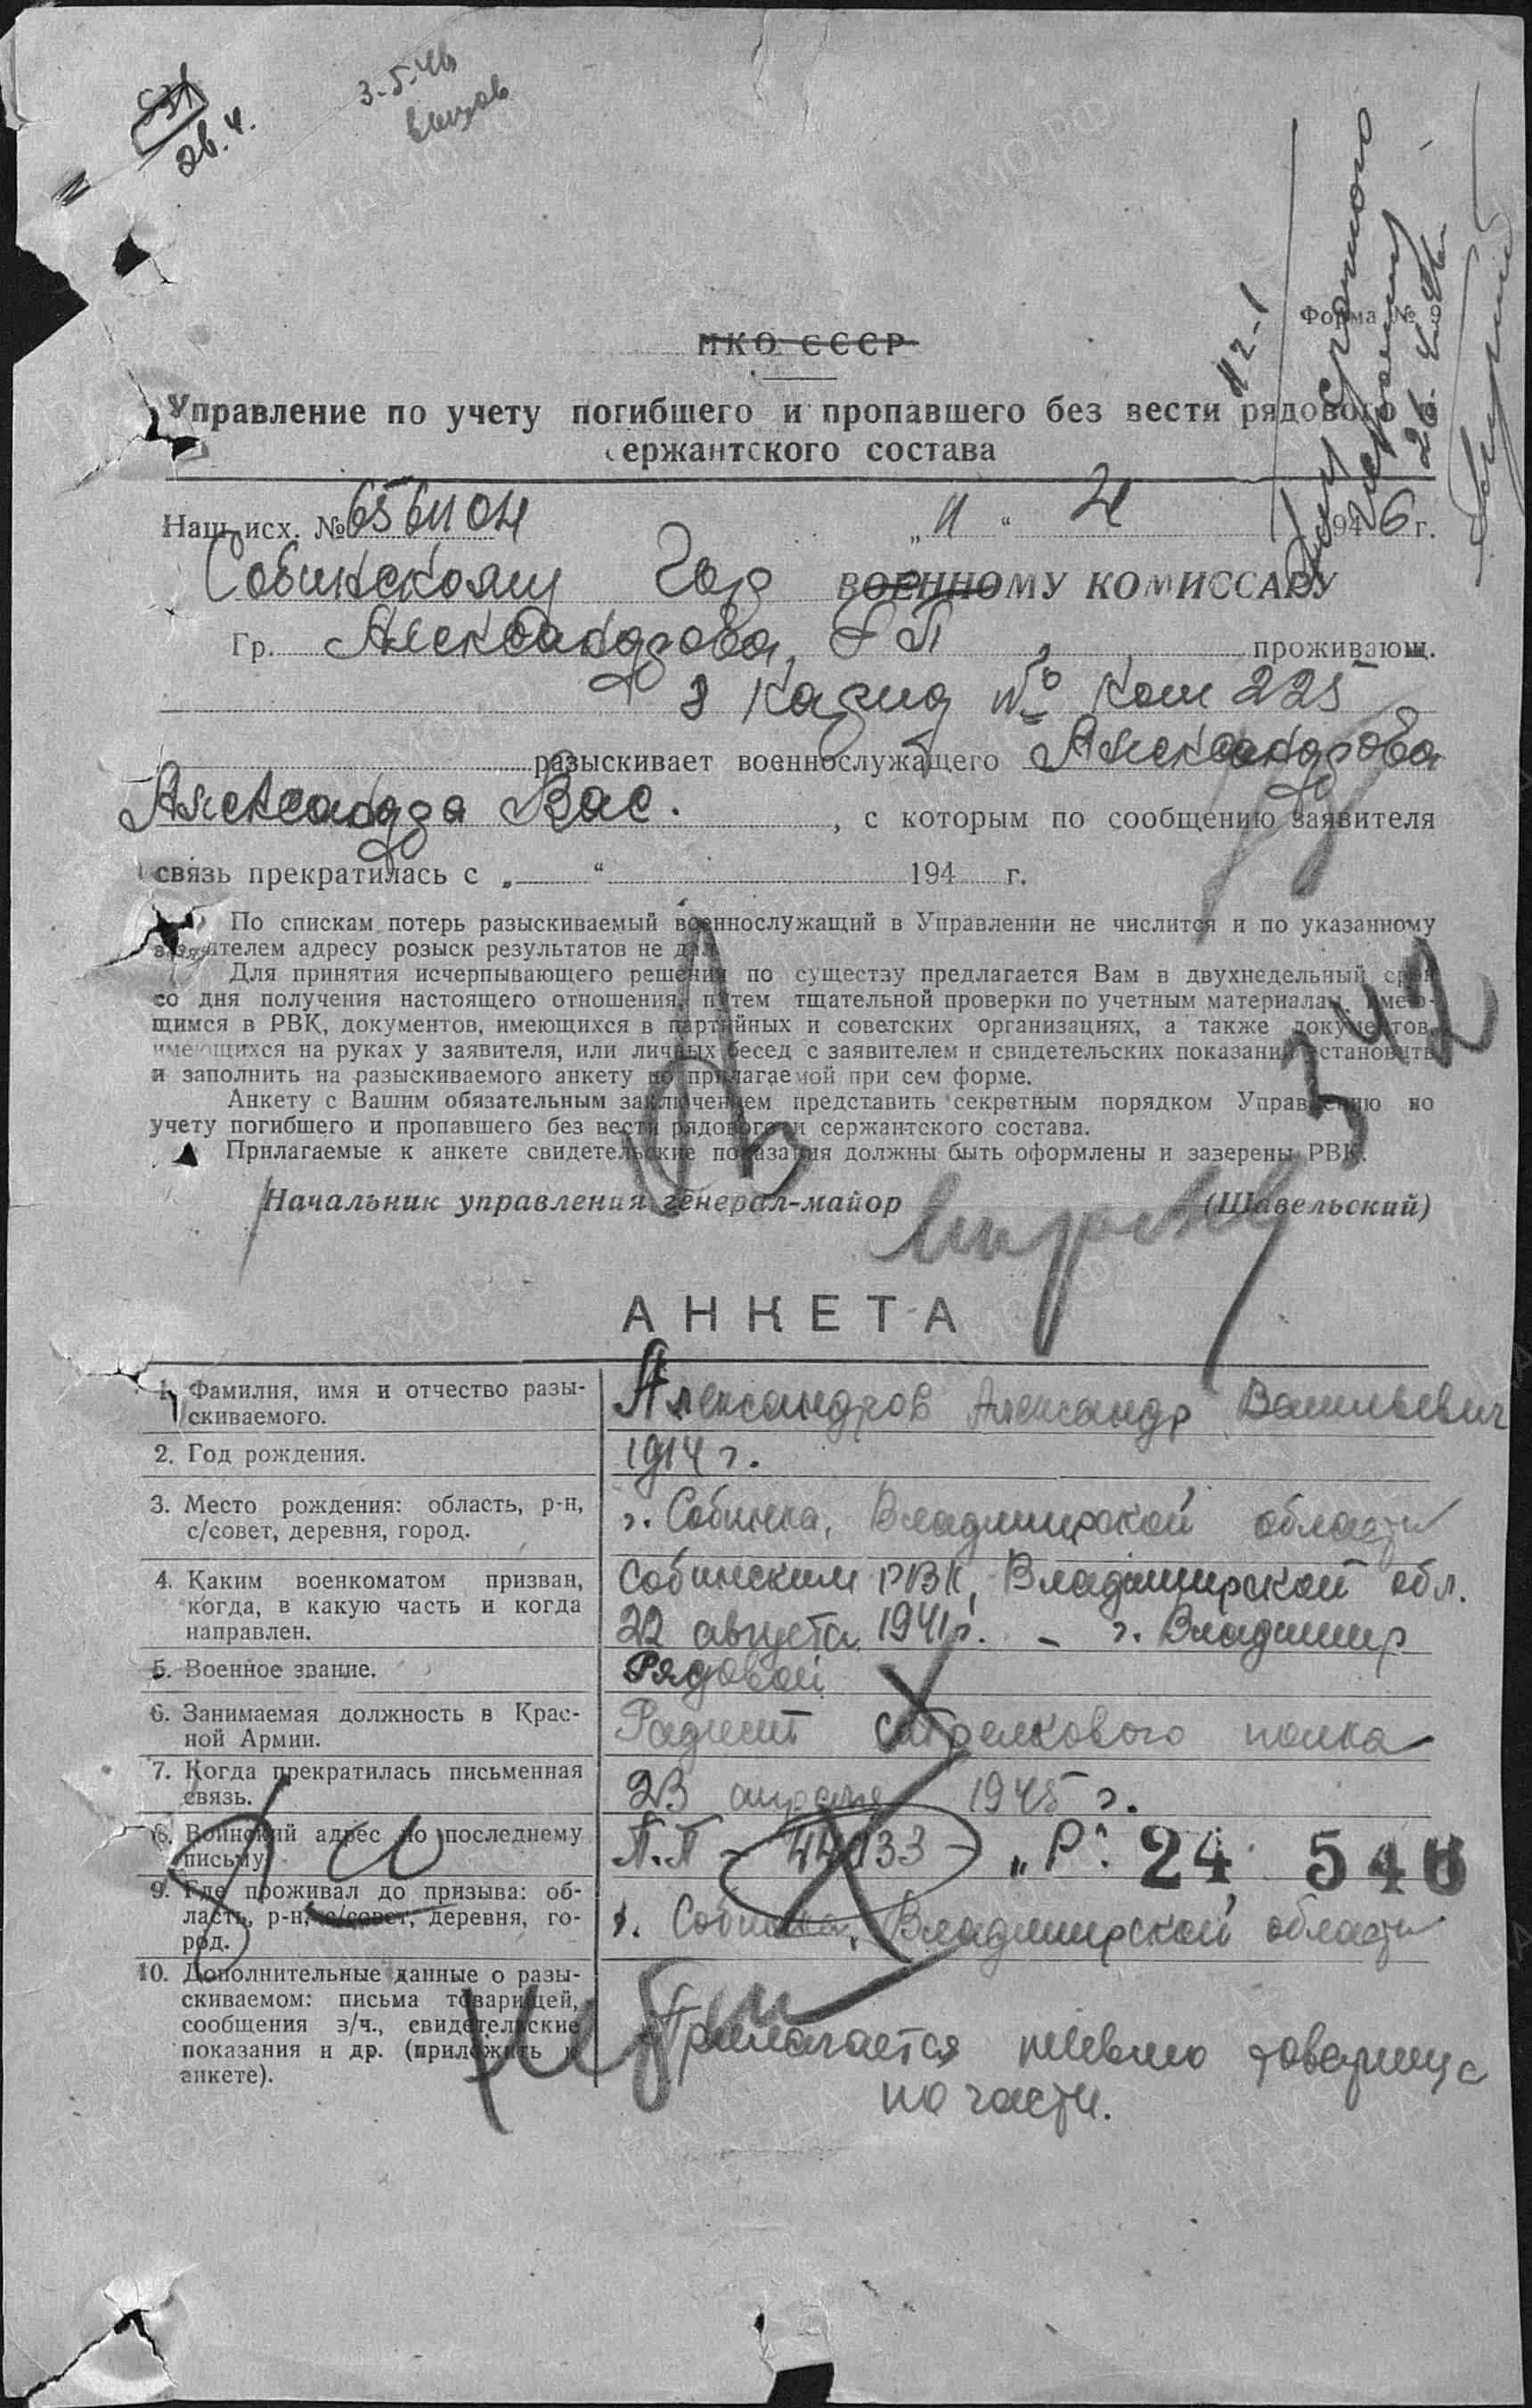 3-5-46
вызов
Форма № 9
НКО СССР
Управление по учету погибшего и пропавшего без вести рядового и
сержантского состава
Наш исх. №
"11" 4 1946 г.
Собинскому Гор ВОЕННОМУ КОМИССАРУ
Гр. Александрова, проживающ.
разыскивает военнослужащего Александрова
Александра Вас. , с которым по сообщению заявителя
связь прекратилась с „ “ 194 г.
По спискам потерь разыскиваемый военнослужащий в Управлении не числится и по указанному
заявителем адресу розыск результатов не дал.
Для принятия исчерпывающего решения по существу предлагается Вам в двухнедельный срок
со дня получения настоящего отношения, путем тщательной проверки по учетным материалам, имею-
щимся в РВК, документов, имеющихся в партийных и советских организациях, а также документов,
имеющихся на руках у заявителя, или личных бесед с заявителем и свидетельских показаний установить
и заполнить на разыскиваемого анкету по прилагаемой при сем форме.
Анкету с Вашим обязательным заключением представить секретным порядком Управлению по
учету погибшего и пропавшего без вести рядового и сержантского состава.
Прилагаемые к анкете свидетельские показания должны быть оформлены и заверены РВК.
Начальник управления генерал-майор (Шавельский)
342
АНКЕТА
1. Фамилия, имя и отчество разы-
скиваемого.
Александров Александр Васильевич
2. Год рождения.
1914 г.
3. Место рождения: область, р-н,
с/совет, деревня, город.
г. Собинка, Владимирской области
4. Каким военкоматом призван,
когда, в какую часть и когда
направлен.
Собинским РВК, Владимирской обл.
22 августа 1941 г. - г. Владимир
5. Военное звание.
Рядовой
6. Занимаемая должность в Крас-
ной Армии.
Радист стрелкового полка
7. Когда прекратилась письменная
связь.
23 апреля 1945 г.
8. Воинский адрес по последнему
письму.
П.П - 44133 - „Р“. 24 546
9. Где проживал до призыва: об-
ласть, р-н, с/совет, деревня, го-
род.
г. Собинка, Владимирской области
10. Дополнительные данные о разы-
скиваемом: письма товарищей,
сообщения в/ч., свидетельские
показания и др. (приложить к
анкете).
Прилагается письмо товарища
по части.